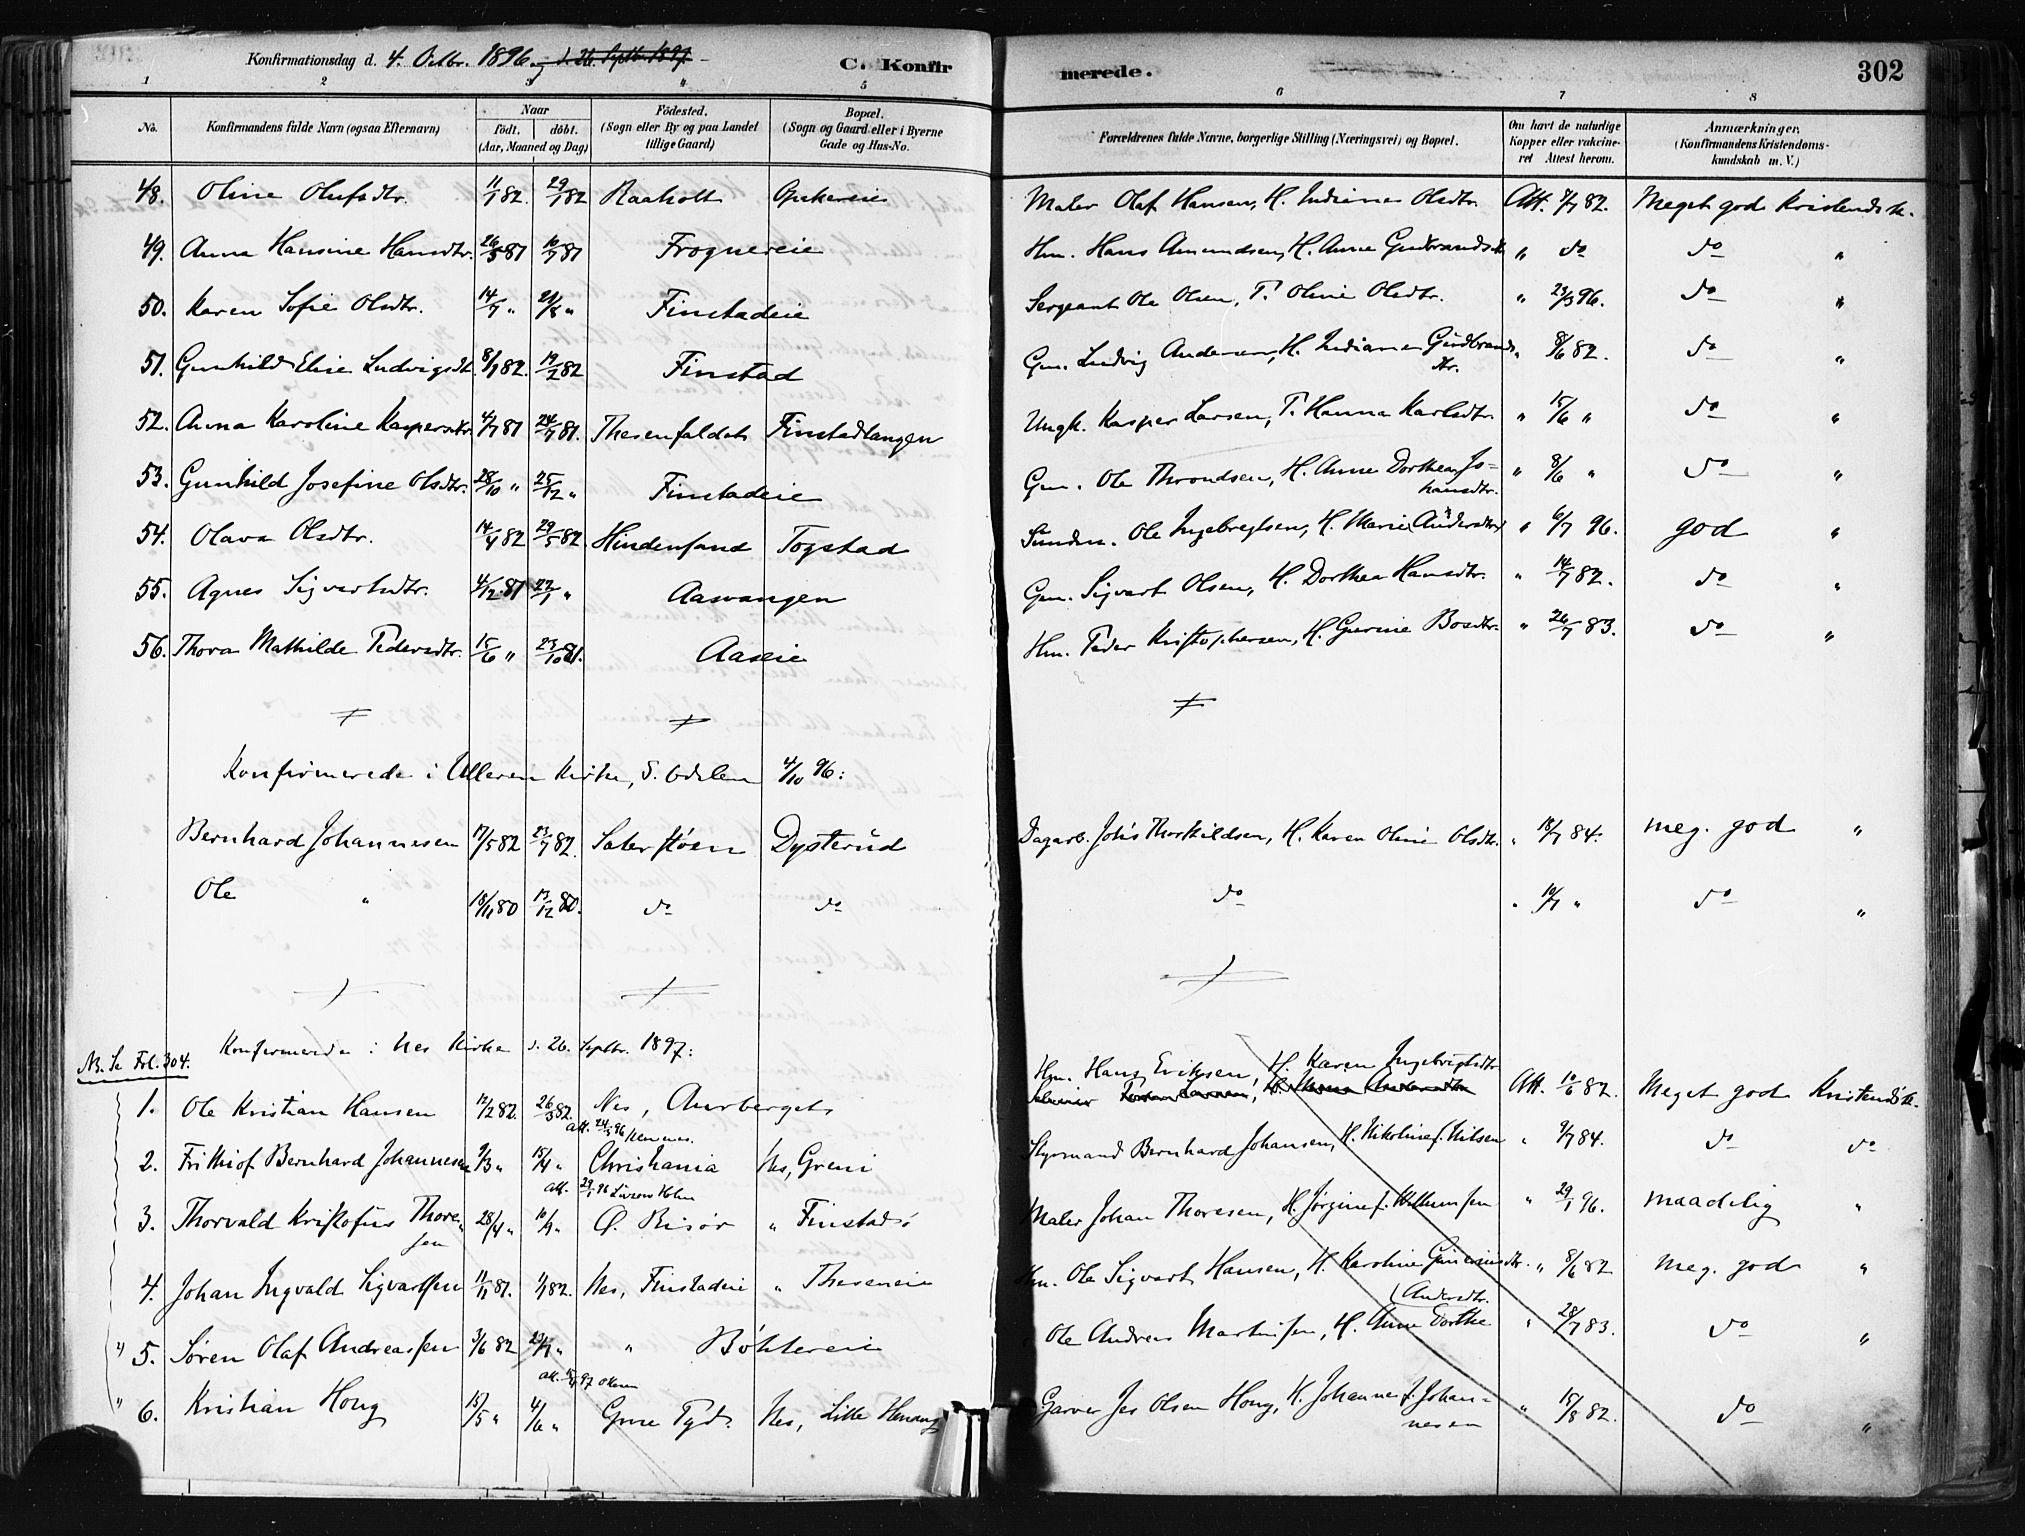 Konfirmationsdag d. 4. Octbr. 1896. d. 26. Septbr. 1897 C. Konfir merede. 302
1 2 3 4 5 6 7 8
No. Konfirmandens fulde Navn (ogsaa Efternavn) Naar födt. döbt. (Aar, Maaned og Dag) Födested. (Sogn eller By og paa Landet tillige Gaard) Bopæl. (Sogn og Gaard eller i Byerne Gade og Hus-No. Forældrenes fulde Navne, borgerlige Stilling (Næringsvei) og Bopæl. Om havt de naturlige Kopper eller vakcineret Attest herom. Anmærkninger. (Konfirmandens Kristendomskundskab m. V.)
48. Oline Olufsdtr. 11/7 82 29/7 82 Raaholt Maler Olaf Hansen, H. Indiana Olsdtr. Att. 82. Meget god Kristendsk.
49. Anna Hansine Hansdtr. 26/5 81 10/7 81 Frognereie Hm. Hans Amundsen, H. Anne Gudbrandsd. " do do "
50. Karen Sofie Olsdtr. 14/7 " 21/8 " Finstadeie Sergeant Ole Olsen, T. Oline Olsdtr. " 23/3 96. do "
51. Gunhild Elise Ludvigsdt. 8/1 82. 19/2 82 Finstad Gm. Ludvig Andersen, H. Indiana Gudbrandsdtr. " 8/6 82. do "
52. Anna Karoline Kaspersdtr. 4/7 81 24/7 81. Thesenfaldet Finstadtangen Ungk. Kasper Larsen, T. Hanna Karlsdtr. " 15/6 " do "
53. Gunhild Josefine Olsdtr. 28/10 " 25/12 " Finstadeie Gm. Ole Throndsen, H. Anne Dorthea Johansdtr. " 8/6 " do "
54. Olava Olsdtr. 14/4 82 29/5 82 Hindensand Togstad Ole Ingebregtsen, H. Marie Andersdtr " 6/7 96. god "
55. Agnes Sigvartsdtr. 4/12 81 22/1 " Aasvangen Gm. Sigvart Olsen, H. Dorthea Hansdtr. " 14/7 82. do "
56. Thora Mathilde Pedersdtr. 15/6 " 23/10 81. Aaseie Hm. Peder Kristophersen, H. Gurine Bosdtr. " 26/7 83. do "
Konfirmerede i Ulleren Kirke, S. Odalen 4/10 96:
Bernhard Johannesen 17/5 82 23/7 82. Saterstøen Dysterud Dagarb. Johs Thorkildsen, H. Karen Oline Olsdtr. " 18/7 84. meg. god "
Ole " 18/11 80 13/12 80. do do do " 10/7 " do "
Konfirmerede i Nes Kirke d. 26. Septbr. 1897:
NB. Se Fol. 304.
Hm. Hans Eriksen, H. Karen Ingebrigtsdtr
1. Ole Kristian Hansen 12/2 82. 26/3 82. Nes, Aurberget Att. 10/6 82. Meget god Kristendsk.
2. Frithiof Bernhard Johannesen 9/3 " 15/4 " Christiania Nes, Greni Styrmand Bernhard Johansen, H. Nikoline f. Nilsen " 9/7 84. do do
3. Thorvald Kristofer Thoresen 28/4 " 10/9 " Ø. Risør " Finstad Maler Johan Thoresen, H. Jørgine f. " 29/1 96. maadelig "
4. Johan Ingvald Sigvartsen 11/11 81. 1/1 82. Nes, Finstadeie " Theseneie Hm. Ole Sigvart Hansen, H. Karoline " 8/6 82 meg. god "
" 5. Søren Olaf Andreassen 3/6 82 23/7 " " Bøhlereie " Ole Andreas Martinsen, H. Anne Dorthe (Andersdtr. " 28/7 83. do "
" 6. Kristian Houg 15/5 " 4/6 " Grue Nes, Lille Henang Garver Jes Olsen Houg, H. Johanne f. Johannesen " 15/8 82. do "